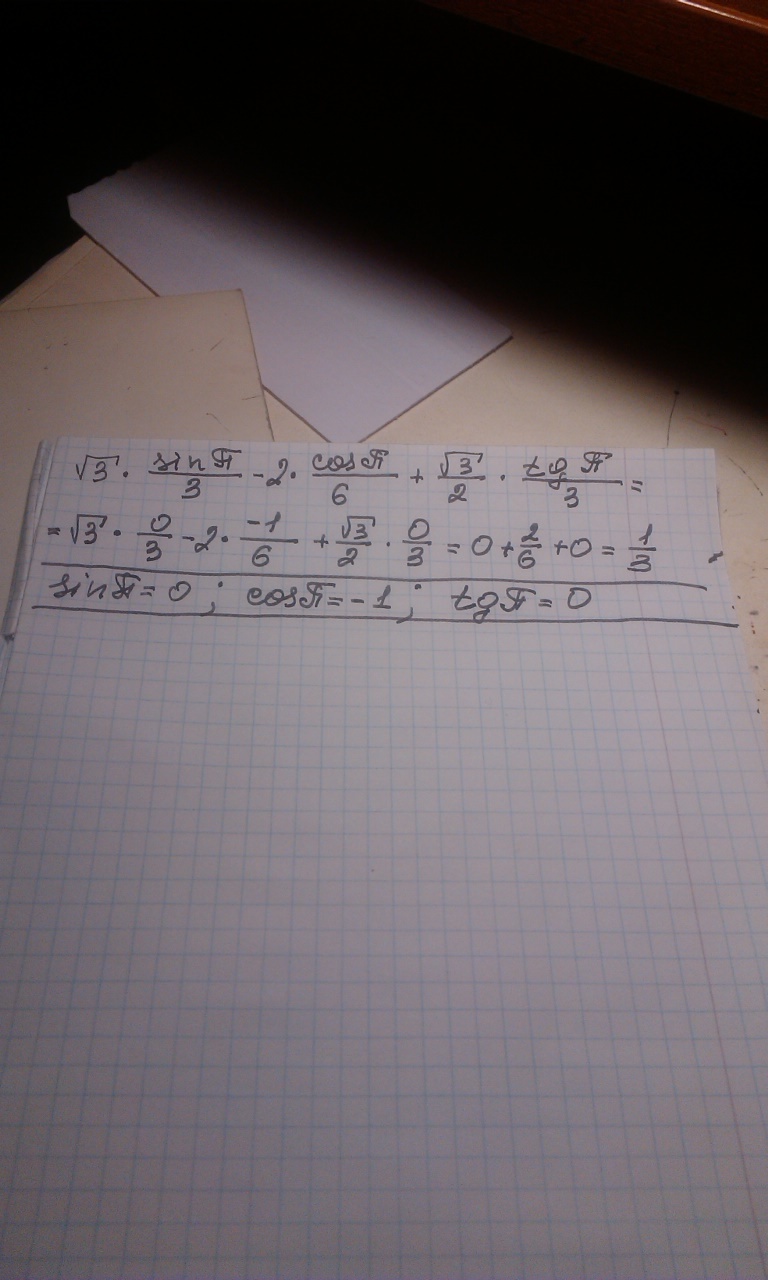 √3 · sin π/3 - 2 · cos π/6 + √3/2 · tg π/3 =
= √3 · 0/3 - 2 · -1/6 + √3/2 · 0/3 = 0 + 2/6 + 0 = 1/3
sin π = 0 ; cos π = - 1 ; tg π = 0